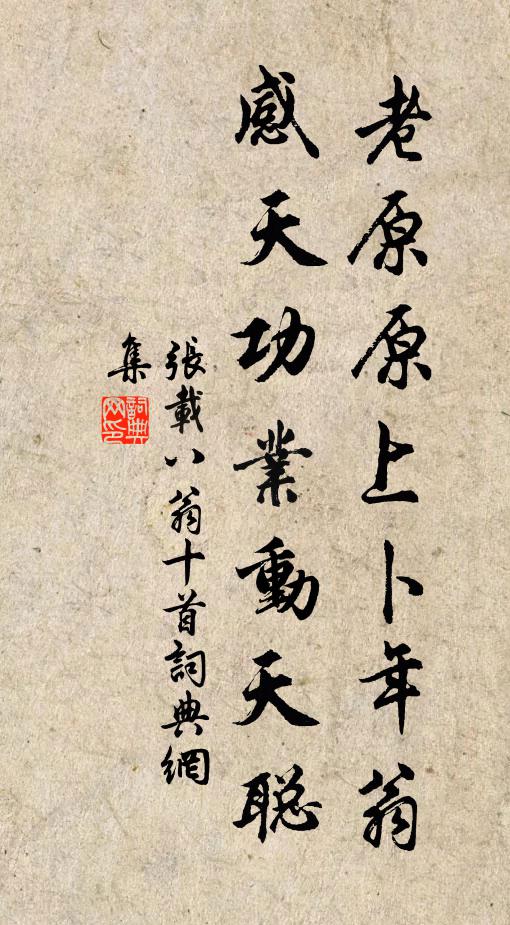 老原原上卜年翁
感天功業動天聰
張載八翁十首詞典網
集
詞典網印